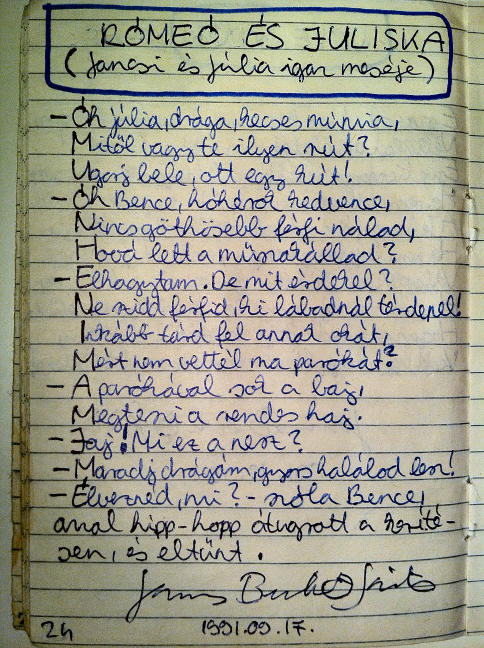 RÓMEÓ ÉS JULISKA
(Jancsi és Júlia igaz meséje)
- Óh Júlia, drága, kecses múmia,
Mitől vagy te ilyen rút?
Ugorj bele, ott egy kút!
- Óh Bence, hóhérok kedvence,
Nincs göthösebb férfi nálad,
Hová lett a műszakállad?
- Elhagytam. De mit érdekel?
Ne szidd férfid, ki lábadnál térdepel!
Inkább tárd fel annak okát,
Mért nem vettél ma parókát?
- A parókával sok a baj,
Megteszi a rendes haj.
- Jaj! Mi ez a nesz?
- Maradj drágám, gyors halálod lesz!
- Élvezned, mi? - szóla Bence,
azzal hipp-hopp átugrott a keríté-
sen, és eltűnt.
24 1991.09.17.